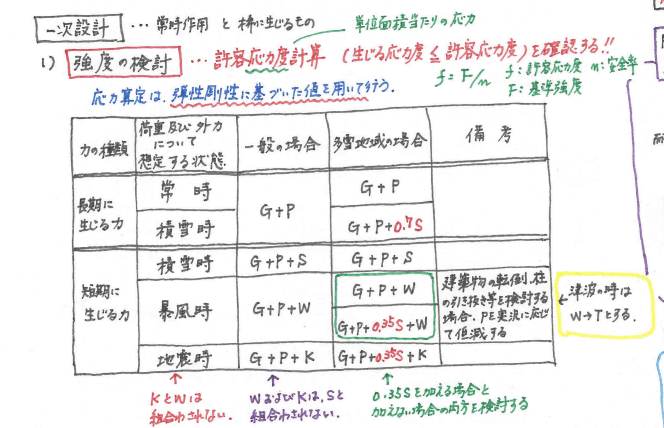 一次設計 … 常時作用 と 稀に生じるもの
単位面積当たりの応力
1) 強度の検討 … 許容応力度計算 (生じる応力度 ≦ 許容応力度) を確認する!!
f = F/n f : 許容応力度 n : 安全率
F : 基準強度
応力算定は、弾性剛性に基づいた値を用いて行う。
力の種類 荷重及び外力について想定する状態. 一般の場合 多雪地域の場合 備考
長期に生じる力 常時 G+P G+P
積雪時 G+P+0.7S
短期に生じる力 積雪時 G+P+S G+P+S
暴風時 G+P+W G+P+W 建築物の転倒、柱の引き抜き等を検討する場合、Pを実況に応じて低減する
G+P+0.35S+W
地震時 G+P+K G+P+0.35S+K
←津波の時は
W→Tとする。
KとWは
組合わされない.
WおよびKは、Sと
組合わされない.
0.35Sを加える場合と
加えない場合の両方を検討する